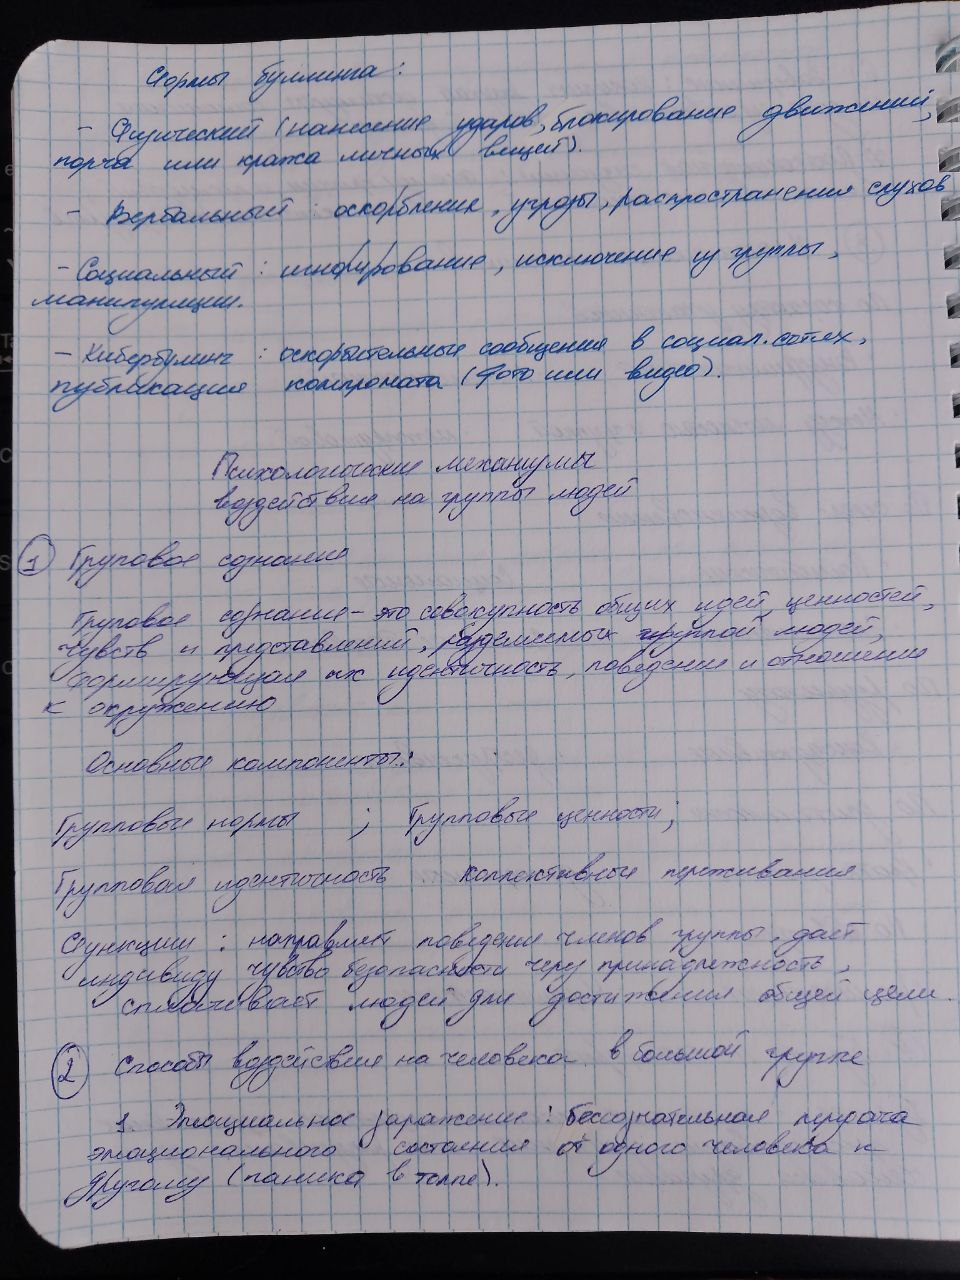 Формы буллинга:
- Физический (нанесение ударов, блокирование движений,
порча или кража личных вещей).
- Вербальный: оскорбление, угрозы, распространения слухов
- Социальный: игнорирование, исключение из группы,
манипуляции.
- Кибербулинг: оскорбительные сообщения в социал. сетях,
публикация компромата (фото или видео).
Психологические механизмы
воздействия на группы людей
1 Груповое сознание
Груповое сознание - это совокупность общих идей, ценностей,
чувств и представлений, разделяемых группой людей,
формирующая их идентичность, поведение и отношение
к окружению
Основные компоненты:
Групповые нормы ; Групповые ценности;
Групповая идентичность .. коллективные переживания
Функции: направляет поведение членов группы, даёт
индивиду чувство безопасности через принадлежность,
сплачивает людей для достижения общей цели.
2 Способы воздействия на человека в большой группе
1. Эмоциальное заражение: бессознательная передача
эмоционального состояния от одного человека к
другому (паника в толпе).